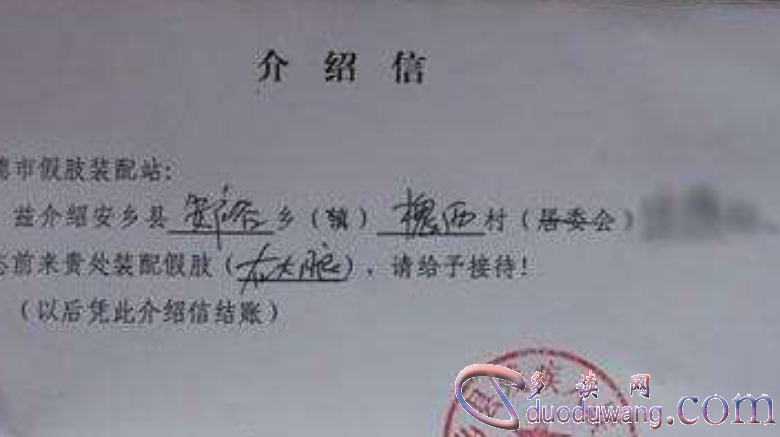 介绍信
德市假肢装配站:
兹介绍安乡县安裕乡(镇)槐西村(居委会)
前来贵处装配假肢(右大腿)、请给予接待!
(以后凭此介绍信结账)
多读网
duoduwang.com